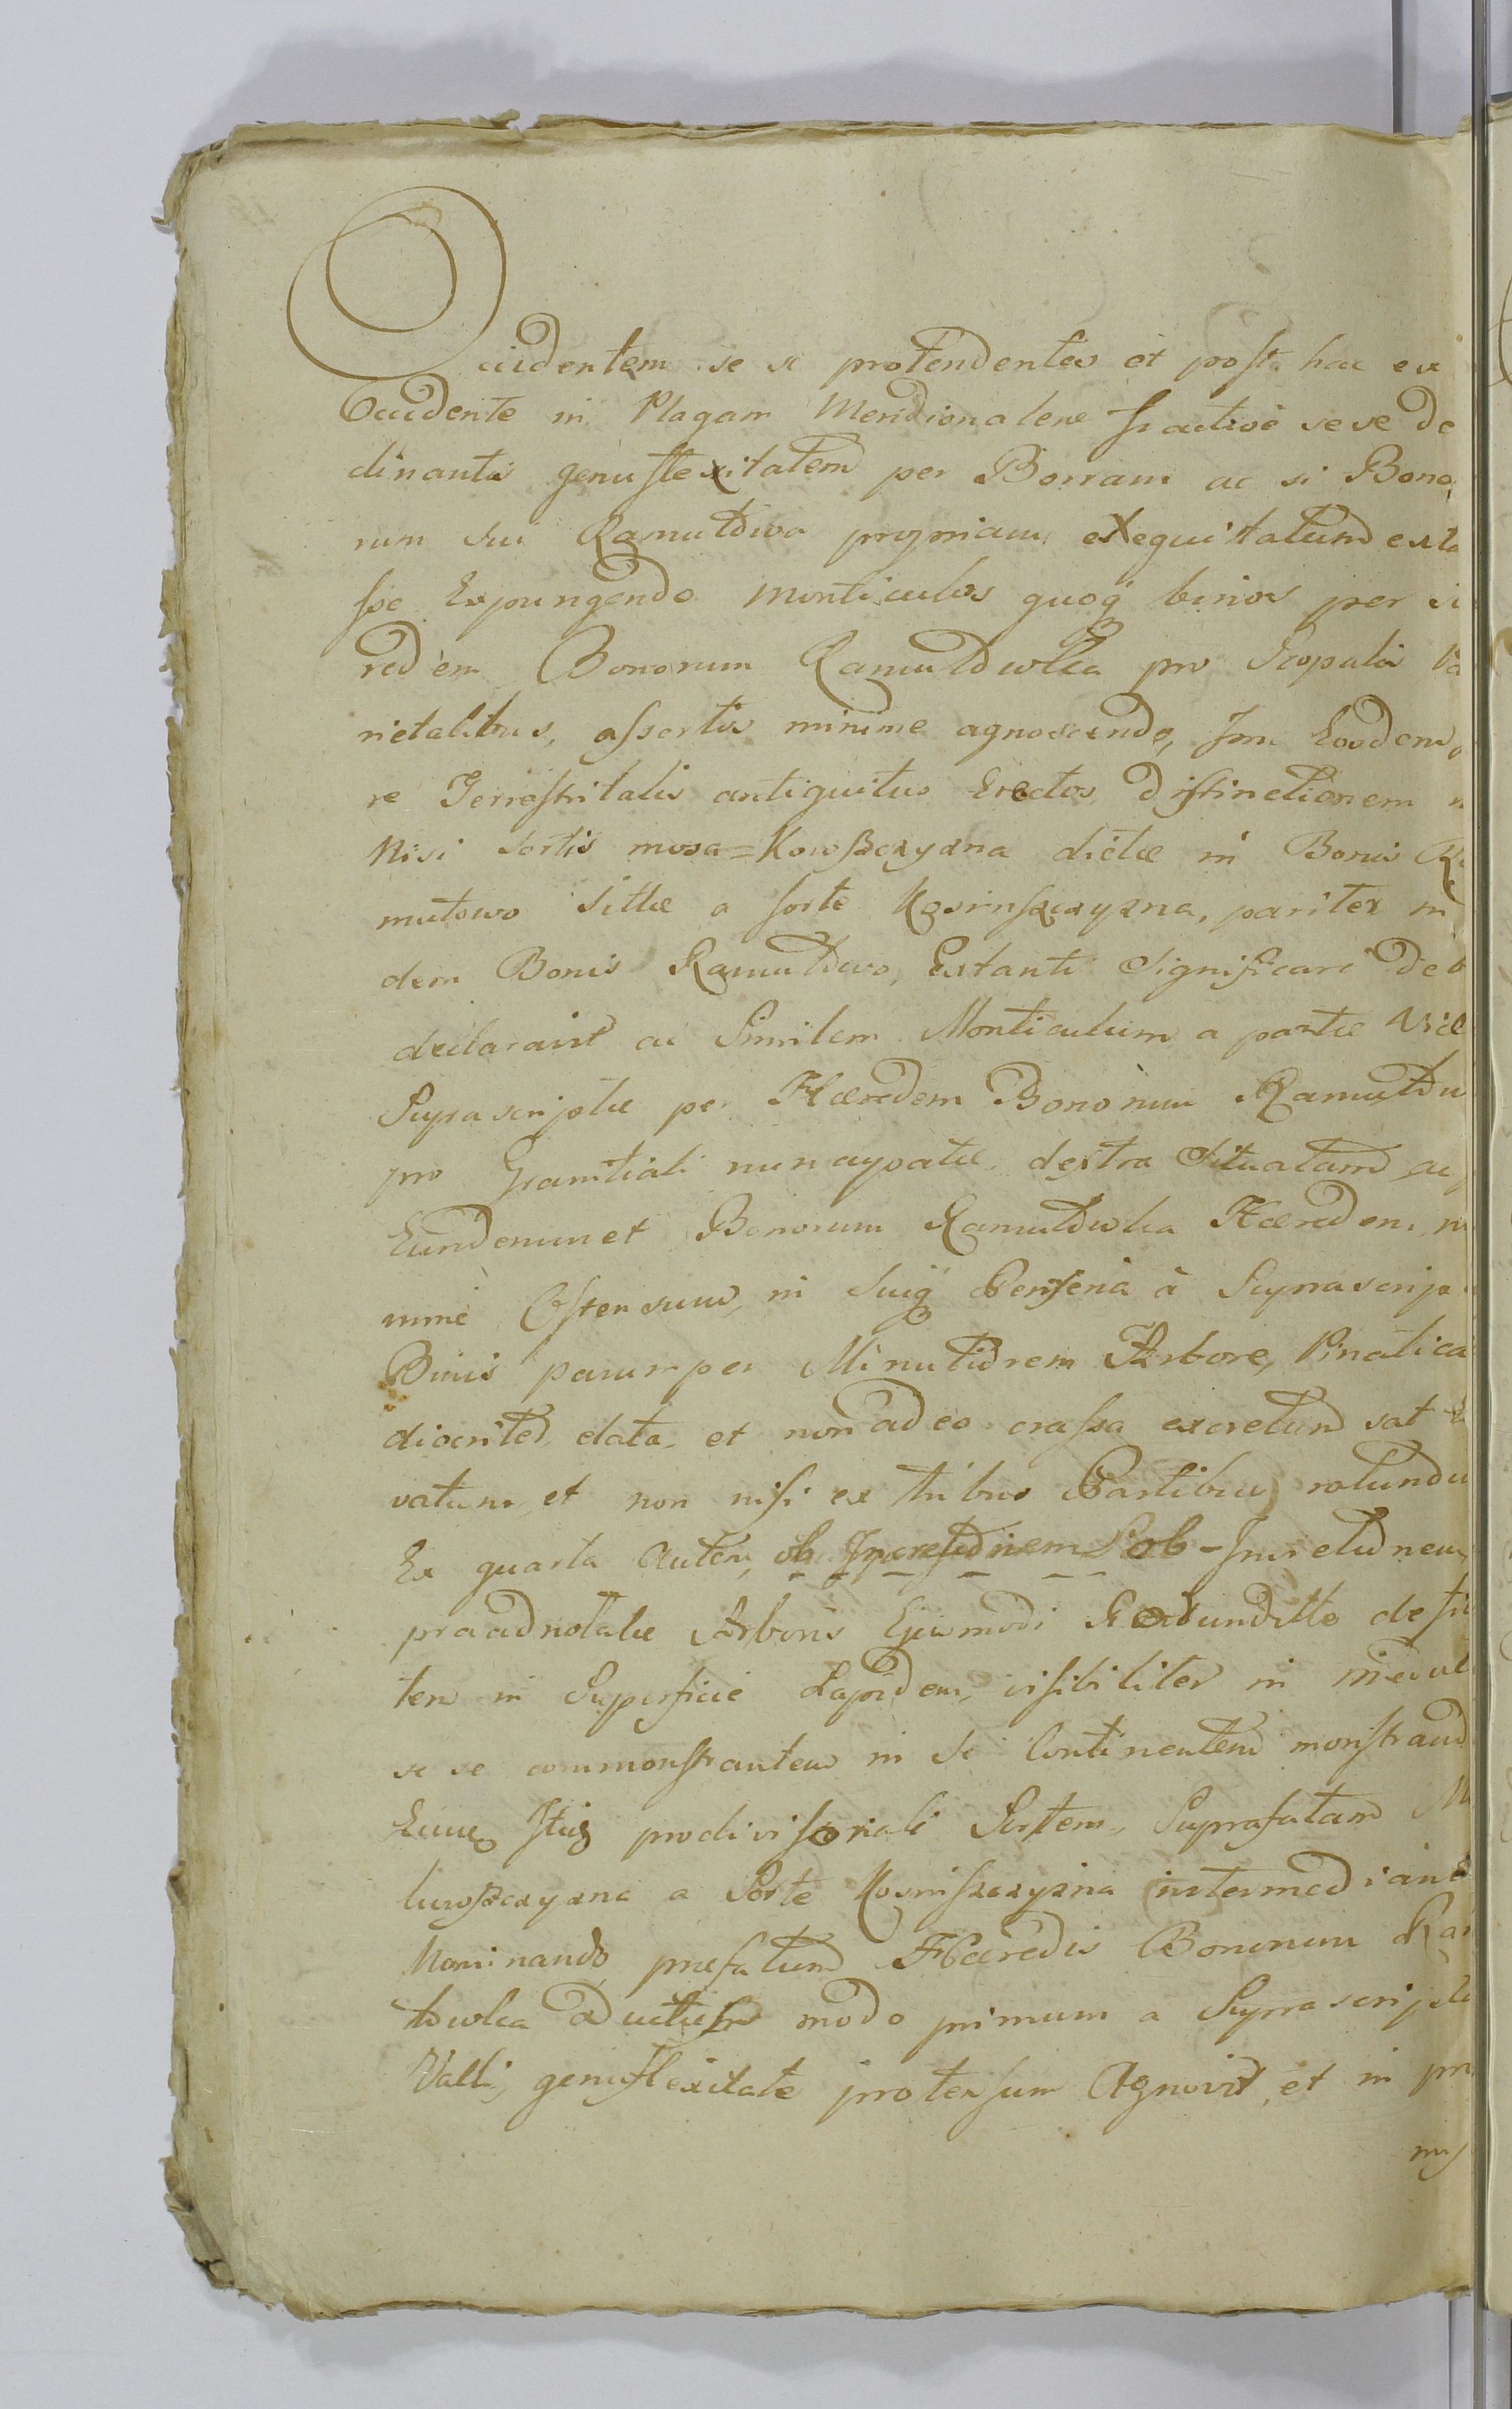 Occidentem se se protendentis et post hac ex
Occidente in Plagam Meridionalem fractivè sese de
clinantis genuflexitatem per Borram ac si Bono,
rum sui Ramutowo propriam exequitatum exta
sse Expungendo Monticulos quoq binos per
redem Bonorum Ramutowka pro Scopulis
rietalibus, assertis minime agnoscendo, Imo Eosdem
re Terrestritatis antiquitus Erectos Distinctionem
Nisi Sortis mosa=Kowszczyzna dictæ in Bonis
mutowo Sittæ a sorte Kosinszczyzna, pariter in
dem Bonis Ramutowo, Extanti Significari Deb
declaravit ac Similem Monticulum a parte Viæ
Suprascriptæ per Hæredem Bonorum Ramutow
pro Granitiali nuncupatæ dextra Situatum ac
Eundemmet Bonorum Ramutowka Hæredem,
nimè Ostensum, in Suiq Persena à Suprascrip
Binis parumper Minutiorem Arbore, Pinali
diocriter elata et non adeo crassa excretum sat
vatum et non nisi ex tribus Partibus rotundu
Ex quarta Autem, ob Increscdnem Pob-Incretudnem
præadnotatæ Arboris Ejusmodi Rotunditte
tem in Superficie Lapidem, visibiliter in
se se commonstrantem in Se Continentem monstrand
Eumq Itiq prodivisoriali Sortem, Suprafatam
kowszczyzna a Sorte Kosinszczyzna intermediant
Nominando præfatum Hæredis Bonorum Ra
towka Ductum modo primum a Suprascripta
Valli, genuflexitate protensum Agnovit, et in